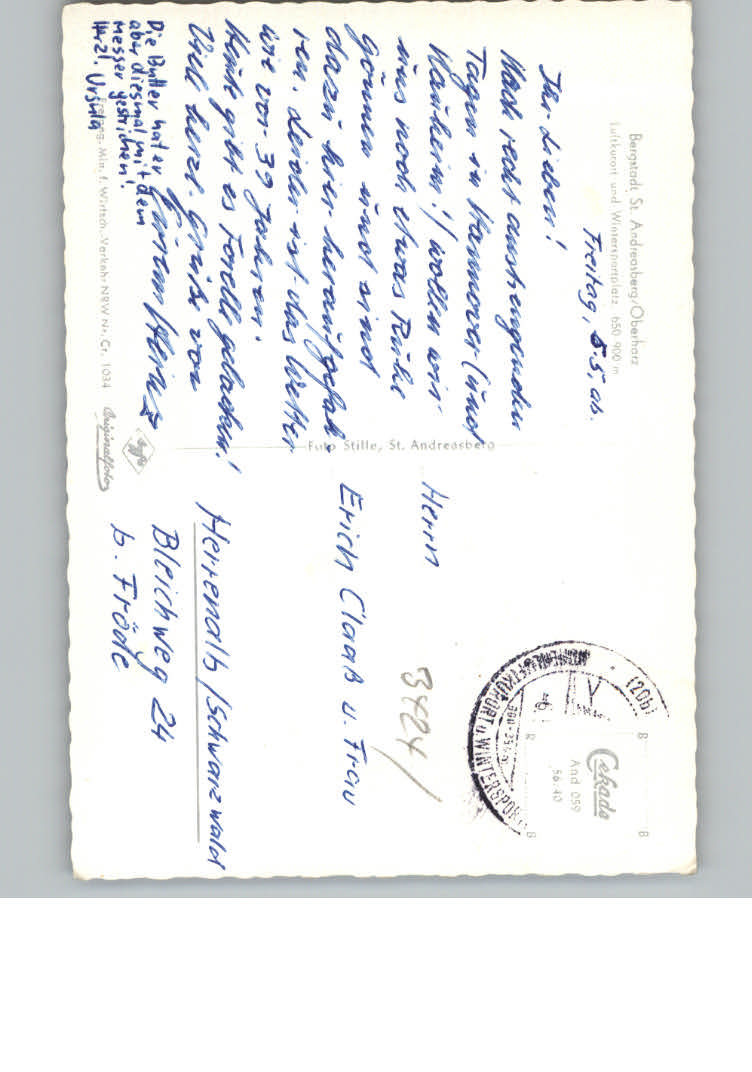 Bergstadt St. Andreasberg/Oberharz
Luftkurort und Wintersportplatz 650-900 m
Freitag, 5.5. ab.
Ihr Lieben!
Nach recht anstrengenden
Tagen in Hannover (und
Nauheim!) wollen wir
uns noch etwas Ruhe
gönnen und sind
dazu hier heraufgefah
ren. Leider ist das Wetter
wie vor 39 Jahren.
Heute gibt es Forelle gebacken!
Viele herzl. Grüße von
Eurem Heinz
Die Butter hat er
aber diesmal mit dem
Messer gestrichen!
Herzl. Ursula
Freigeg. Min. f. Wirtsch. Verkehr NRW Nr. Cr. 1034
Originalfoto
Agfa
Foto Stille, St. Andreasberg
(20b)
LUFTKURORT u. WINTERSPORT
Cekade
And 059
56/40
B
B
B
B
3424/
Herrn
Erich Claaß u. Frau
Herrenalb/Schwarzwald
Bleichweg 24
b. Fröde